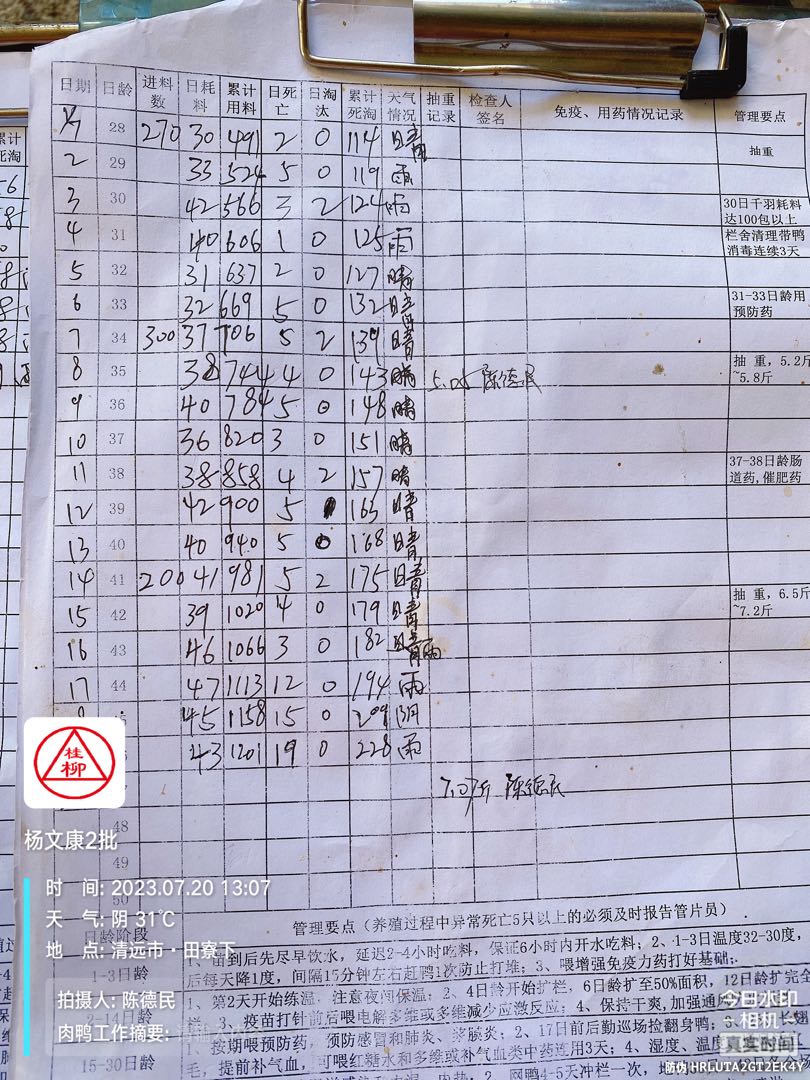 日期 日龄 进料数 日耗料 累计用料 日死亡 日淘汰 累计死淘 天气情况 抽重记录 检查人签名 免疫、用药情况记录 管理要点
28 270 30 491 2 0 114 晴 抽重
2 29 33 524 5 0 119 雨
3 30 42 566 3 2 124 雨 30日千羽耗料达100包以上
4 31 40 606 1 0 125 雨 栏舍清理带鸭消毒连续3天
5 32 31 637 2 0 127 晴
6 33 32 669 5 0 132 晴 31-33日龄用预防药
7 34 300 37 706 5 2 139 晴
8 35 38 744 4 0 143 晴 5.05 陈德民 抽重，5.2斤~5.8斤
9 36 40 784 5 0 148 晴
10 37 36 820 3 0 151 晴
11 38 38 858 4 2 157 晴 37-38日龄肠道药,催肥药
12 39 42 900 5 163 晴
13 40 40 940 5 0 168 晴
14 41 200 41 981 5 2 175 晴
15 42 39 1020 4 0 179 晴 抽重，6.5斤~7.2斤
16 43 46 1066 3 0 182 晴雨
17 44 47 1113 12 0 194 雨
45 1158 15 0 209 阴
43 1201 19 0 228 雨
7.07斤 陈德民
48
49
50
桂柳
杨文康2批
时 间: 2023.07.20 13:07
天 气: 阴 31℃
地 点: 清远市·田寮下
拍摄人: 陈德民
肉鸭工作摘要:
日龄阶段 管理要点（养殖过程中异常死亡5只以上的必须及时报告管片员）.
1-3日龄
到后先尽早饮水，延迟2-4小时吃料，保证6小时内开水吃料；2、1-3日温度32-30度，
后每天降1度，间隔15分钟左右赶鸭1次防止打堆；3、喂增强免疫力药打好基础;
2-14日龄
1、第2天开始练温，注意夜间保温；2、4日龄开始扩栏，6日龄扩至50%面积，12日龄扩完全
栏 3、疫苗打针前后喂电解多维或多维减少应激反应；4、保持干爽,加强通风
15-30日龄
1、按期喂预防药，预防感冒和肺炎、浆膜炎；2、17日前后勤巡场捡翻身鸭；3
毛，提前补气血，可喂红糖水和多维或补气血类中药连用3天；4、湿度、温度
网鸭4-5天冲栏一次，
今日水印
相机
真实时间
防伪 HRLUTA2GT2EK4Y